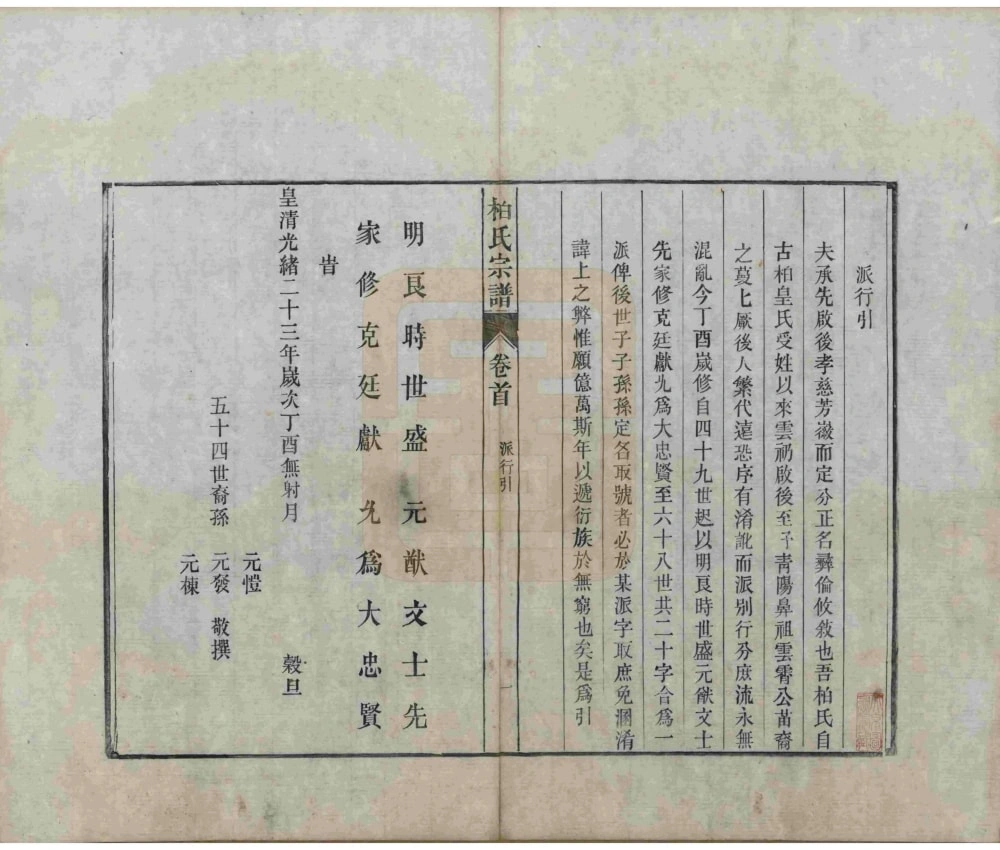 派行引
夫承先啟後孝慈芳徽而定分正名彝倫攸敘也吾柏氏自
古柏皇氏受姓以來雲礽啟後至于青陽鼻祖雲霄公苗裔
之蔓衍厥後人繁代遠恐序有淆訛而派別行分庶流永無
混亂今丁酉歲修自四十九世起以明良時世盛元猷文士
先家修克廷獻允為大忠賢至六十八世共二十字合為一
派俾後世子子孫孫定名取號者必於某派字取庶免溷淆
諱上之弊惟願億萬斯年以遞衍族於無窮也矣是為引
柏氏宗譜 卷首 派行引 一
明良時世盛 元猷文士先
家修克廷獻 允為大忠賢
旹
皇清光緒二十三年歲次丁酉無射月 穀旦
元愷
五十四世裔孫 元發 敬撰
元棟